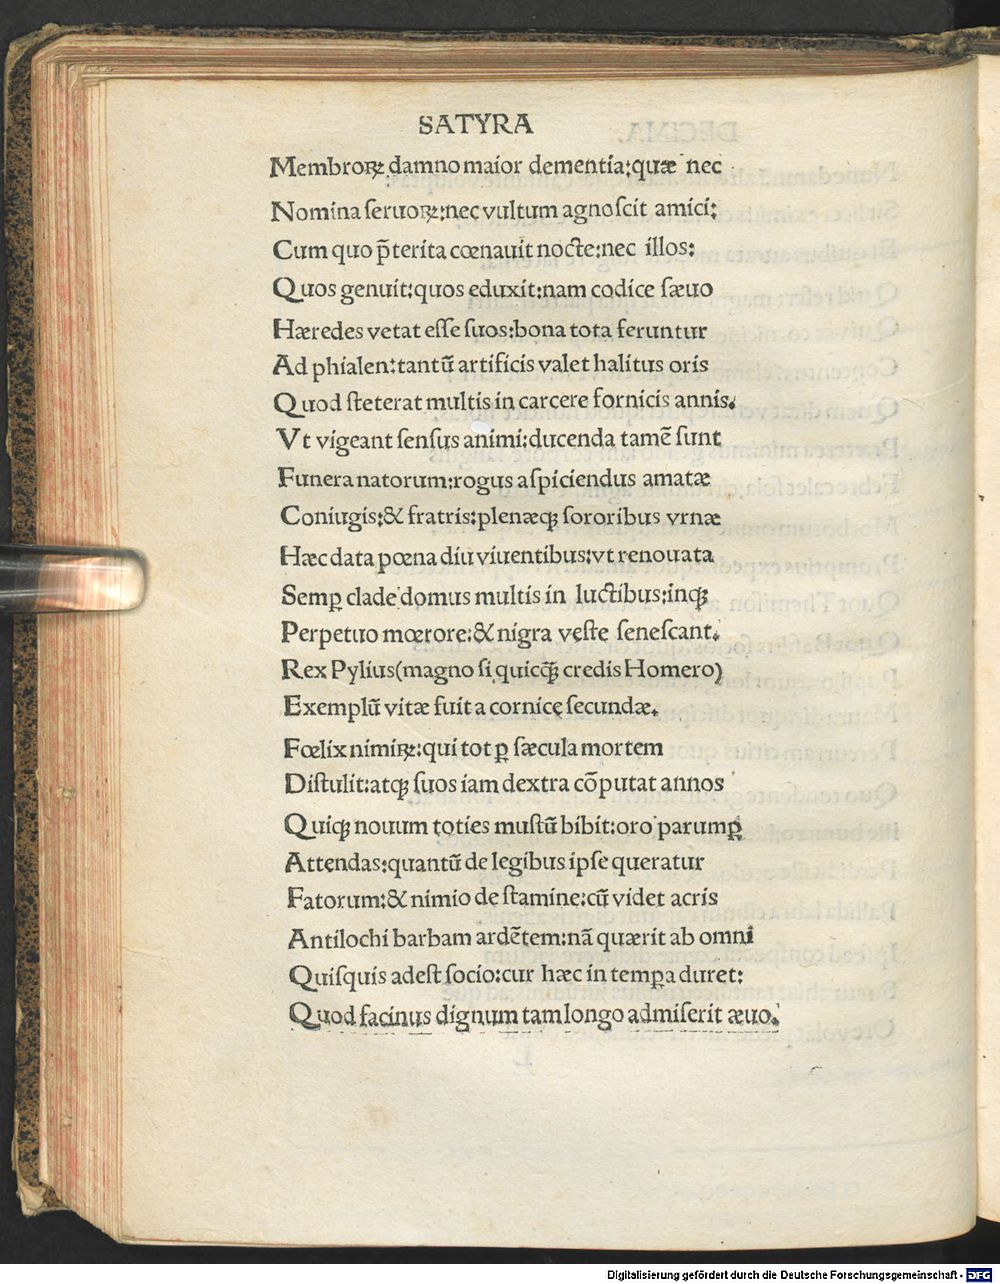 SATYRA
Membroꝝ damno maior dementia: quæ nec
Nomina ſeruoꝝ: nec vultum agnoſcit amici:
Cum quo p̄terita cœnauit nocte: nec illos:
Quos genuit: quos eduxit: nam codice ſæuo
Hæredes vetat eſſe ſuos: bona tota feruntur
Ad phialen: tantū artificis valet halitus oris
Quod ſteterat multis in carcere fornicis annis.
Vt vigeant ſenſus animi: ducenda tamē ſunt
Funera natorum: rogus aſpiciendus amatæ
Coniugis: & fratris: plenæꝗ ſororibus vrnæ
Hæc data pœna diu viuentibus: vt renouata
Semꝑ clade domus multis in luctibus: inꝗ
Perpetuo mœrore: & nigra veſte ſeneſcant.
Rex Pylius (magno ſi quicꝗ̄ credis Homero)
Exemplū vitæ fuit a cornice ſecundæ.
Fœlix nimiꝝ: qui tot ꝑ ſæcula mortem
Diſtulit: atꝗ ſuos iam dextra cōputat annos
Quiꝗ nouum toties muſtū bibit: oro parumꝑ
Attendas: quantū de legibus ipſe queratur
Fatorum: & nimio de ſtamine: cū videt acris
Antilochi barbam ardētem: nā quærit ab omni
Quiſquis adeſt ſocio: cur hæc in temꝑa duret:
Quod facinus dignum tam longo admiſerit æuo.
Digitalisierung gefördert durch die Deutsche Forschungsgemeinschaft - DFG